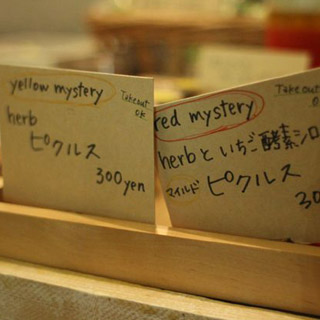 yellow mystery
Takeout
OK
herb
ピクルス
300yen
red mystery
Takeout
OK
herbといちご酵素シロ
マイルド ピクルス
30